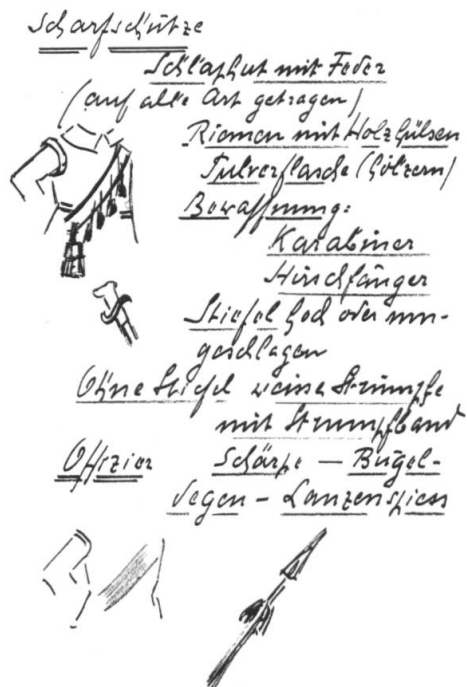 Scharfschütze
Schlaphut mit Feder
(auf alle Art getragen)
Riemen mit Holzhülsen
Pulverflasche (hölzern)
Bewaffnung:
Karabiner
Hirschfänger
Stiefel hoch oder um-
geschlagen
Ohne Stiefel weisse Strümpfe
mit Strumpfband
Offizier Schärpe — Bügel-
degen - Lanzenspiess